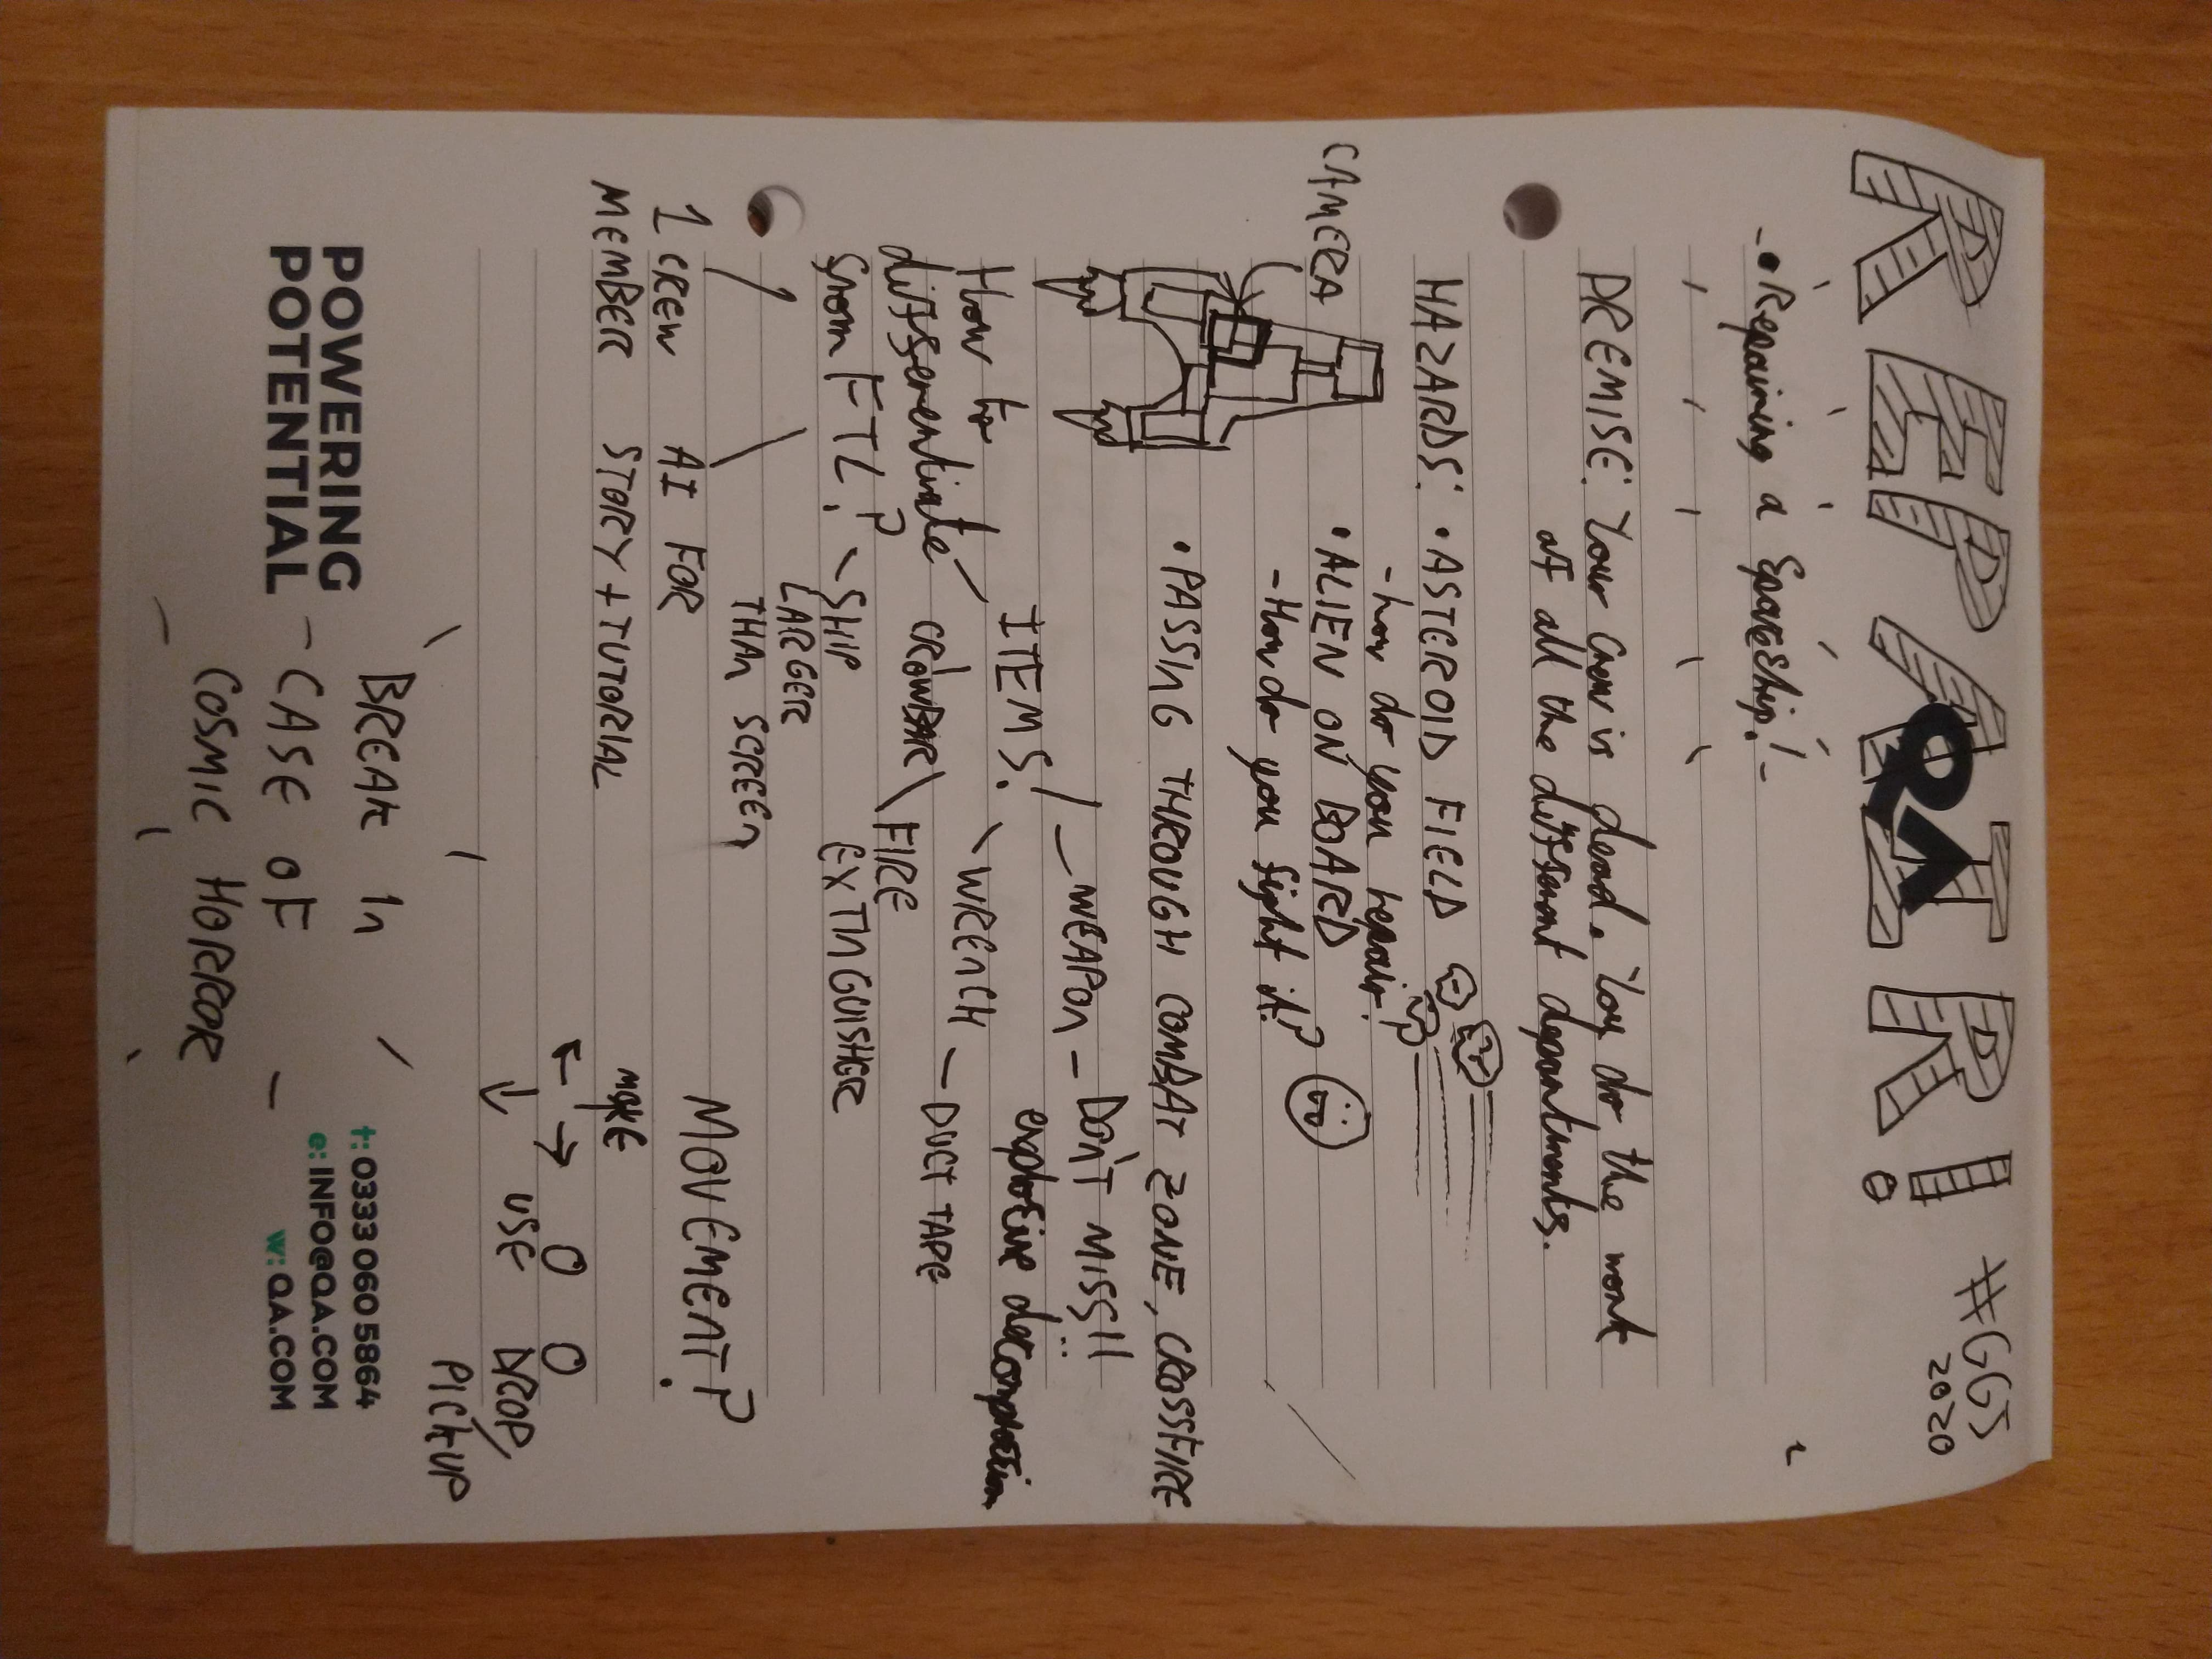 REPAIR! #GGJ
2020
QA
- • Repairing a Spaceship! -
PREMISE: Your crew is dead. You do the work
of all the different departments.
HAZARDS: • ASTEROID FIELD
- how do you repair?
CAMERA
• ALIEN ON BOARD
- How do you fight it?
• PASSING THROUGH COMBAT ZONE, CROSSFIRE
ITEMS:
- WEAPON - DON'T MISS!!
explosive decompression
- WRENCH - DUCT TAPE
CROWBAR
FIRE
EXTINGUISHER
How to
differentiate
from FTL?
- SHIP
LARGER
THAN SCREEN
1 CREW
MEMBER
AI FOR
STORY + TUTORIAL
MOVEMENT?
MOVE
← → ↓
O O
USE DROP/
PICKUP
BREAK IN
- CASE OF
COSMIC HORROR
POWERING
POTENTIAL
t: 0333 060 5864
e: INFO@QA.COM
w: QA.COM